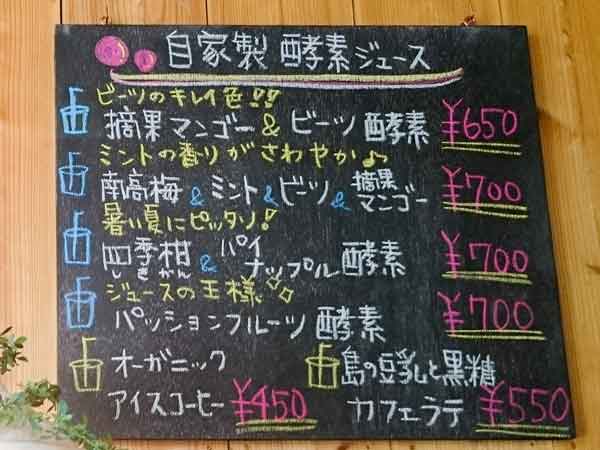 自家製 酵素ジュース
ビーツのキレイ色!!
摘果マンゴー & ビーツ 酵素 ¥650
ミントの香りがさわやか♪
南高梅 & ミント & ビーツ & 摘果マンゴー ¥700
暑い夏にピッタリ!
四季柑 & パイナップル 酵素 ¥700
しきかん
ジュースの王様
パッションフルーツ 酵素 ¥700
オーガニック
アイスコーヒー ¥450
島の豆乳と黒糖
カフェラテ ¥550